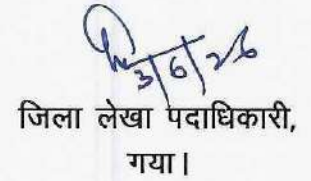 3/6/26
जिला लेखा पदाधिकारी,
गया।